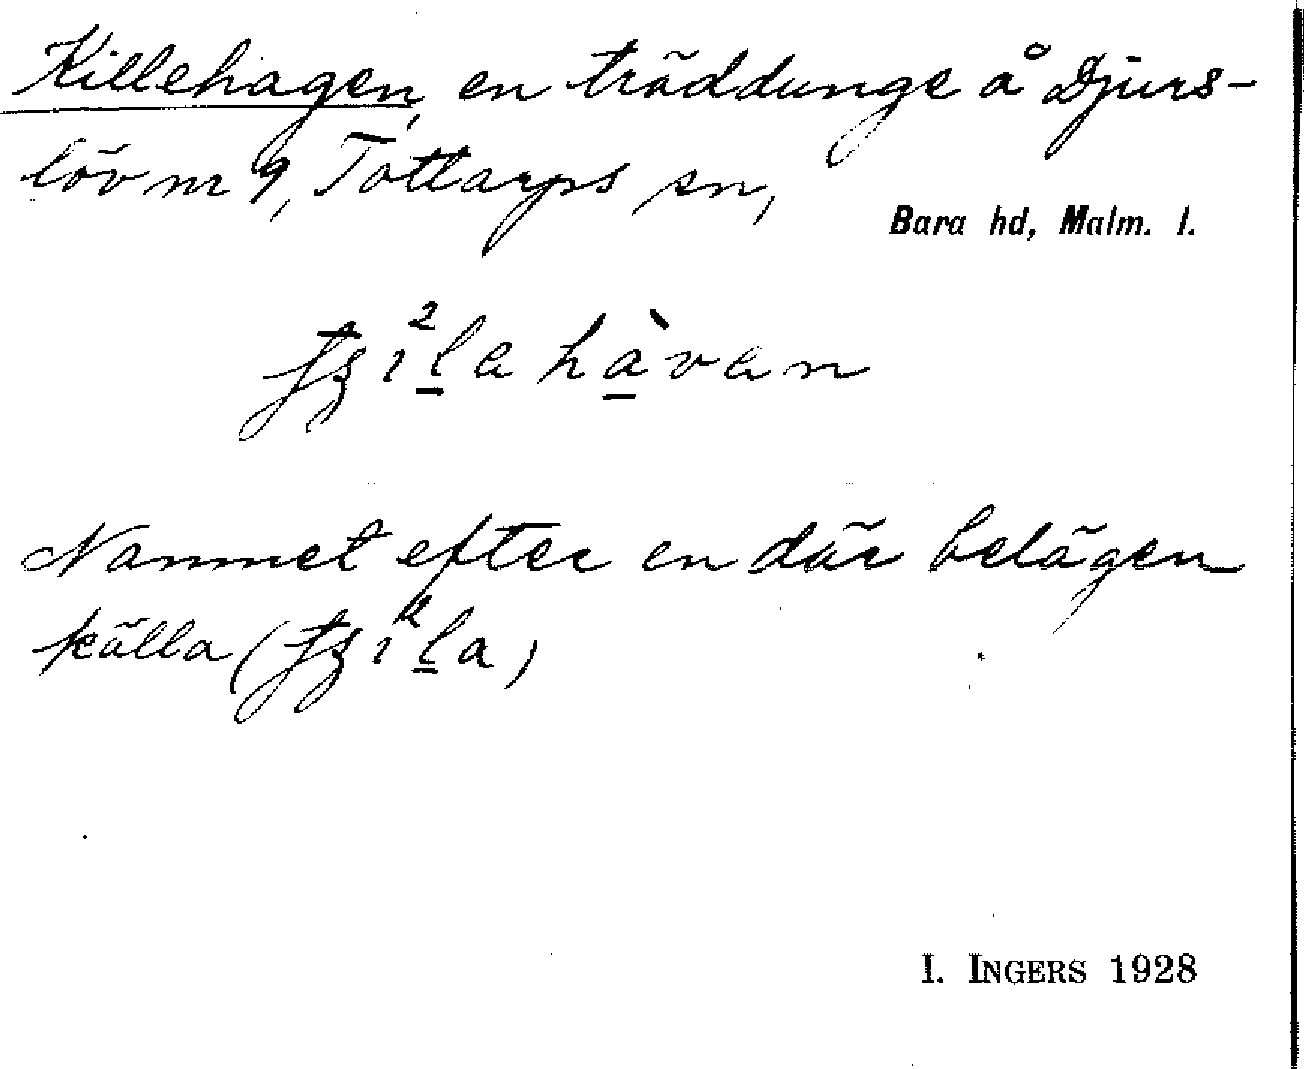 Killehagen, en träddunge å Djurs-
löv nr 9, Tottarps sn,
Bara hd, Malm. l.
Namnet efter en där belägen
källa (
I. INGERS 1928